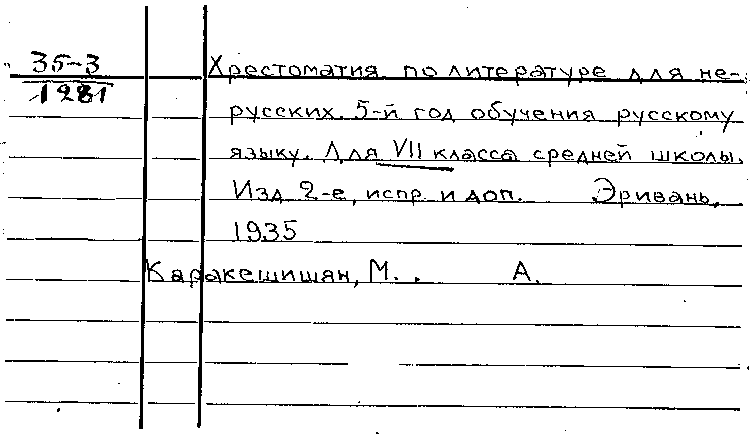 35-3
1281
Хрестоматия по литературе для не-
русских. 5-й год обучения русскому
языку. Для VII класса средней школы.
Изд 2-е, испр. и доп. Эривань,
1935
Каракешишян, М. . А.